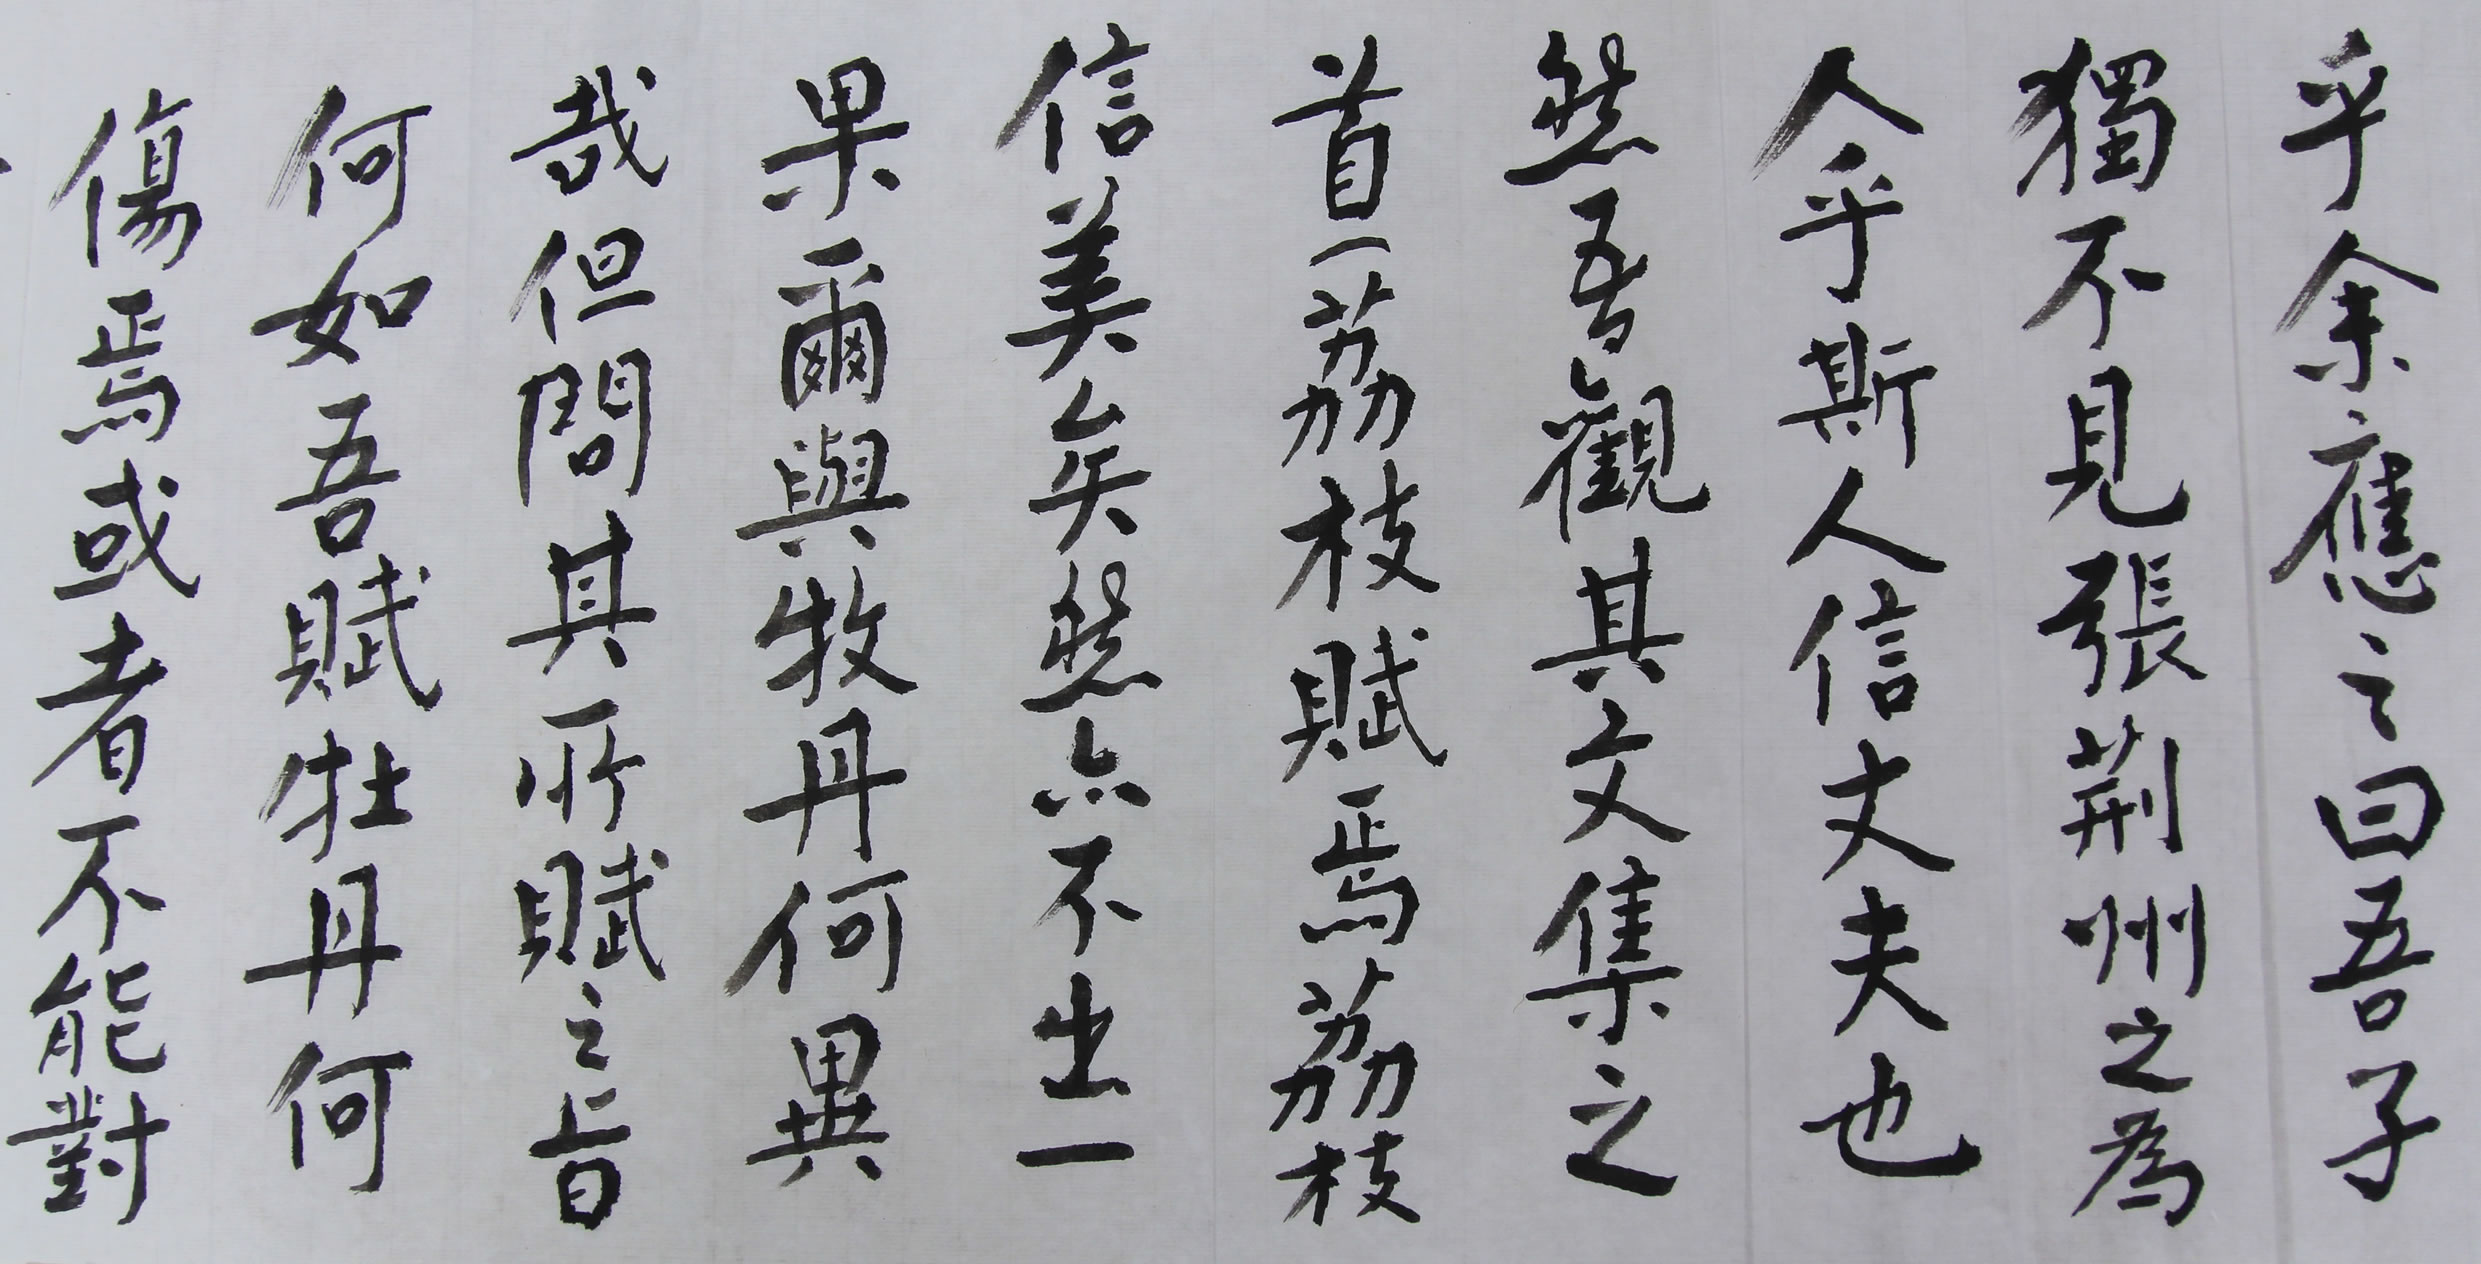 乎余應之曰吾子
獨不見張荊州之為
人乎斯人信丈夫也
然吾觀其文集之
首一荔枝賦焉荔枝
信美矣然亦不出一
果爾與牧丹何異
哉但問其所賦之旨
何如吾賦牡丹何
傷焉或者不能對